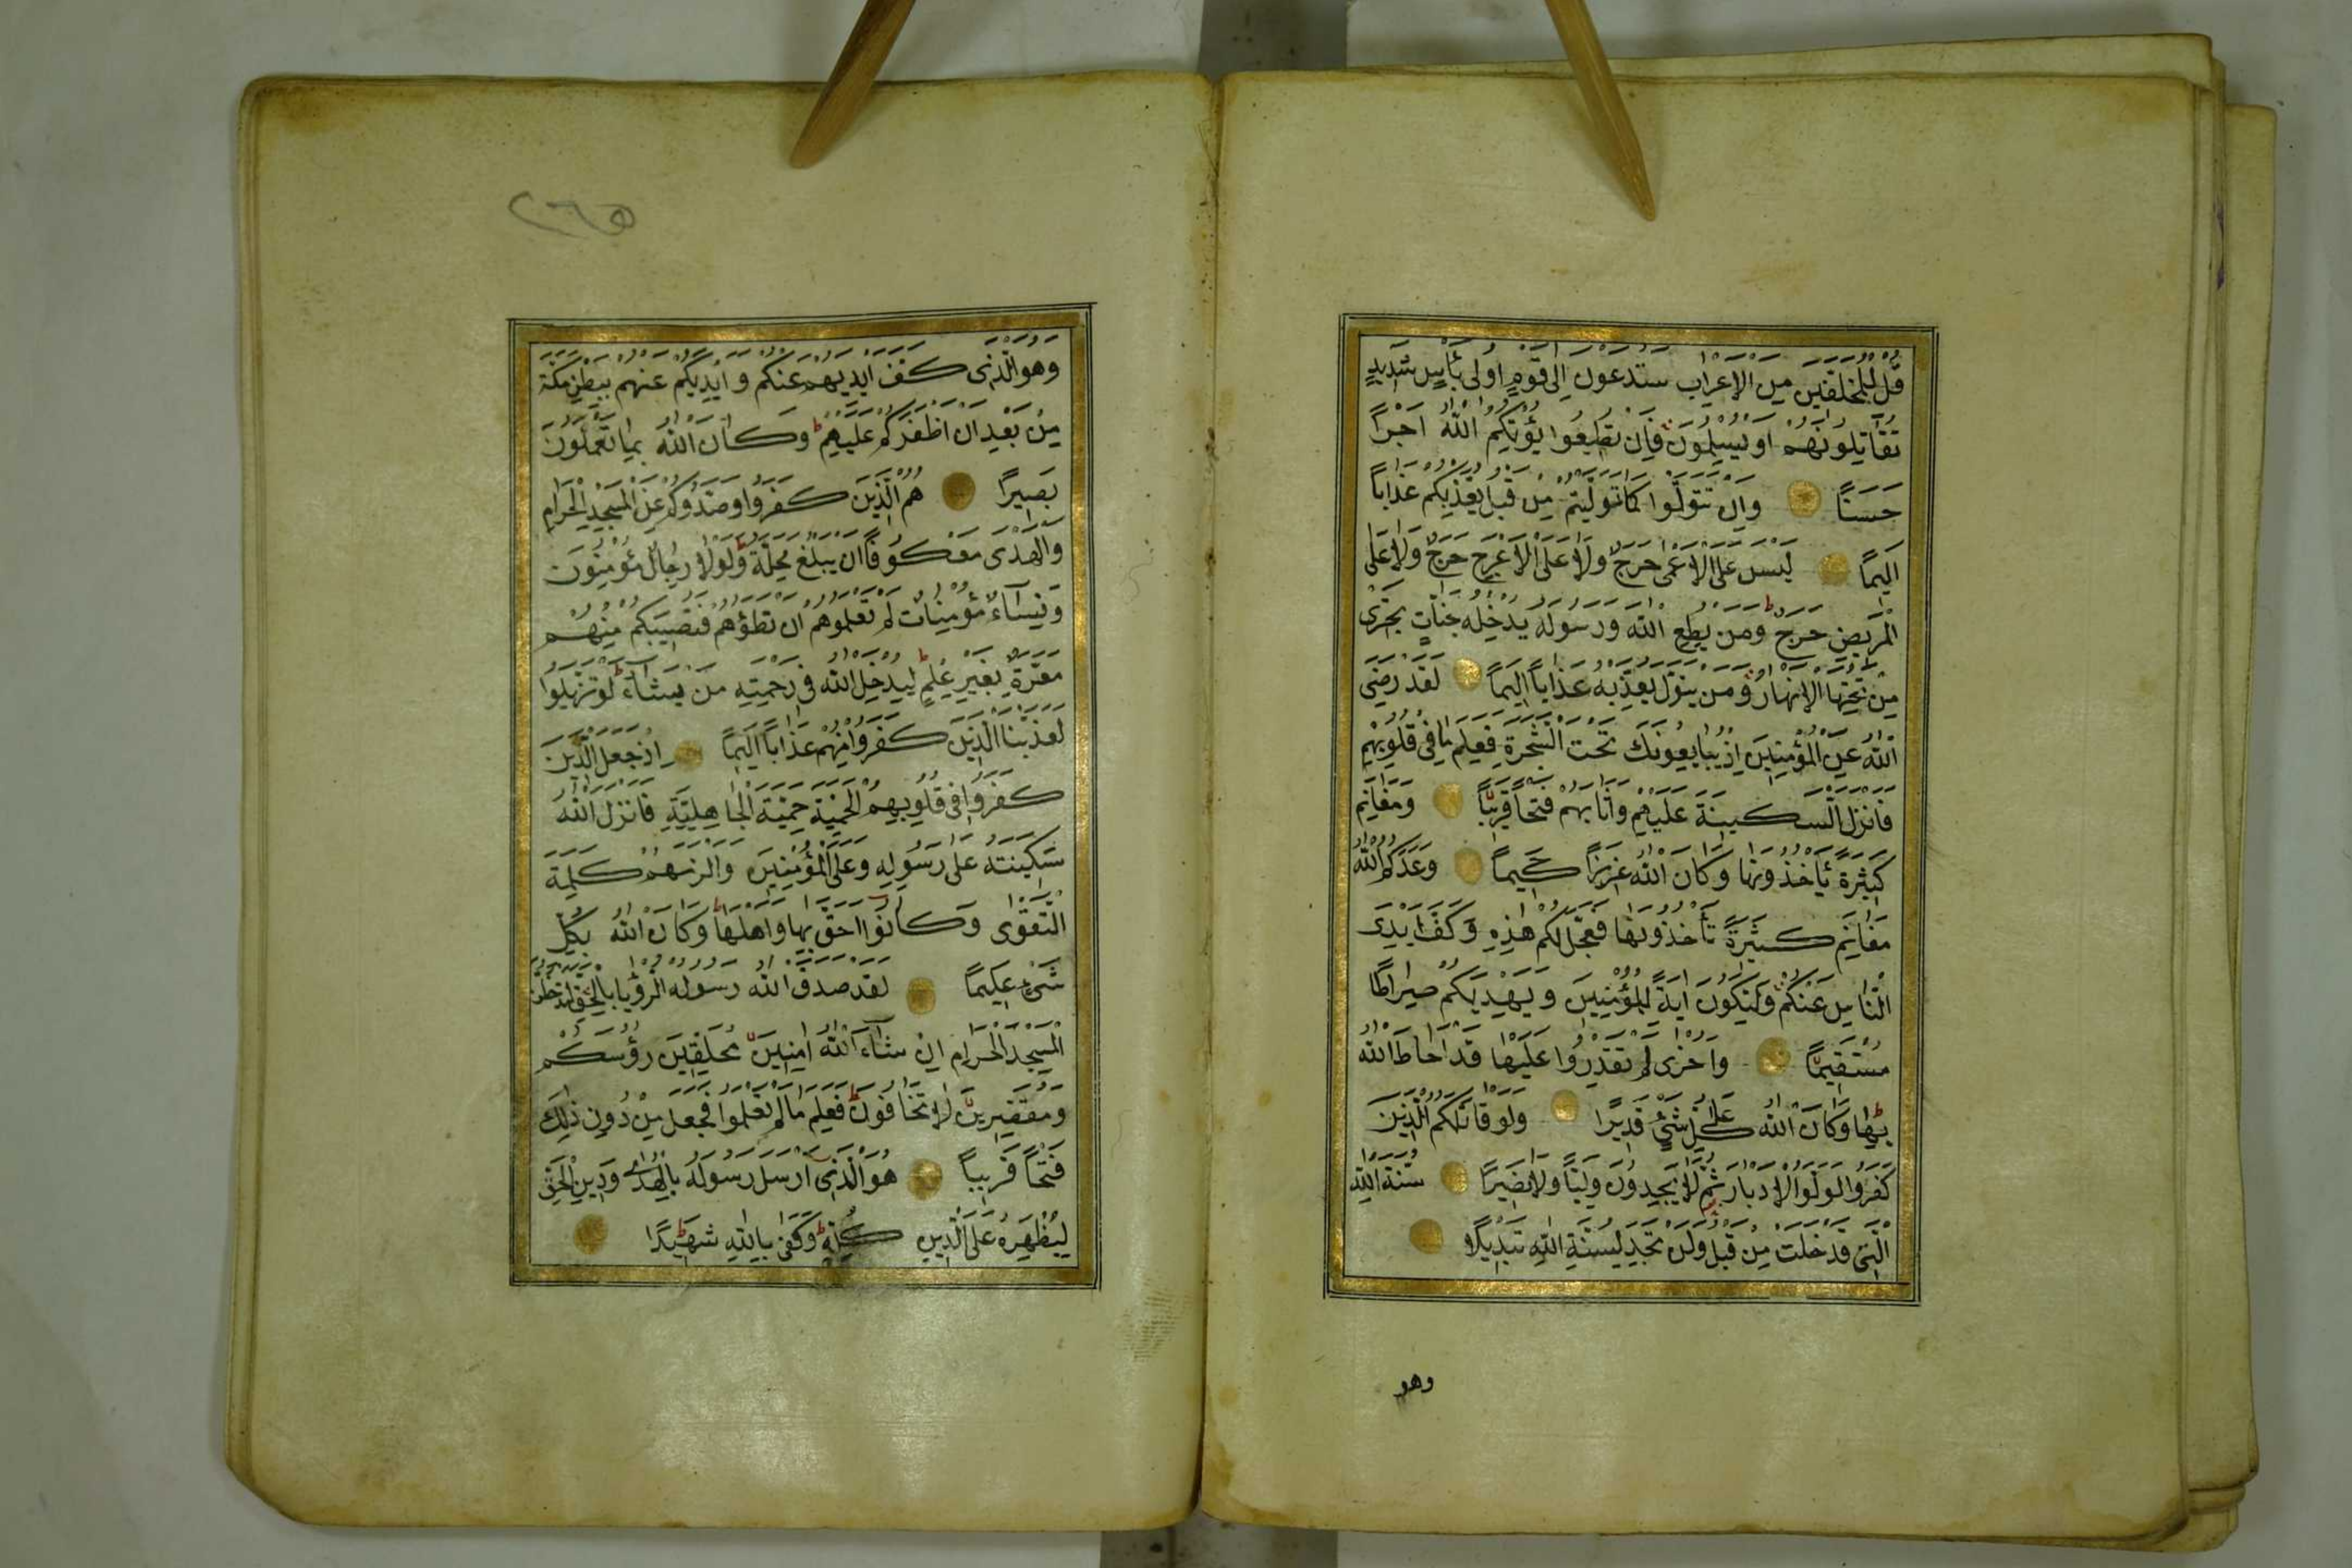 قُلْ لِلْمُخَلَّفِينَ مِنَ الْاَعْرَابِ سَتُدْعَوْنَ اِلٰى قَوْمٍ اُولٖى بَأْسٍ شَدٖيدٍ
تُقَاتِلُونَهُمْ اَوْ يُسْلِمُونَ فَاِنْ تُطٖيعُوا يُؤْتِكُمُ اللّٰهُ اَجْرًا
حَسَنًا وَاِنْ تَتَوَلَّوْا كَمَا تَوَلَّيْتُمْ مِنْ قَبْلُ يُعَذِّبْكُمْ عَذَابًا
اَلٖيمًا لَيْسَ عَلَى الْاَعْمٰى حَرَجٌ وَلَا عَلَى الْاَعْرَجِ حَرَجٌ وَلَا عَلَى
الْمَرٖيضِ حَرَجٌ وَمَنْ يُطِعِ اللّٰهَ وَرَسُولَهُ يُدْخِلْهُ جَنَّاتٍ تَجْرٖى
مِنْ تَحْتِهَا الْاَنْهَارُ وَمَنْ يَتَوَلَّ يُعَذِّبْهُ عَذَابًا اَلٖيمًا لَقَدْ رَضِىَ
اللّٰهُ عَنِ الْمُؤْمِنٖينَ اِذْ يُبَايِعُونَكَ تَحْتَ الشَّجَرَةِ فَعَلِمَ مَا فٖى قُلُوبِهِمْ
فَاَنْزَلَ السَّكٖينَةَ عَلَيْهِمْ وَاَثَابَهُمْ فَتْحًا قَرٖيبًا وَمَغَانِمَ
كَثٖيرَةً يَأْخُذُونَهَا وَكَانَ اللّٰهُ عَزٖيزًا حَكٖيمًا وَعَدَكُمُ اللّٰهُ
مَغَانِمَ كَثٖيرَةً تَأْخُذُونَهَا فَعَجَّلَ لَكُمْ هٰذِهٖ وَكَفَّ اَيْدِىَ
النَّاسِ عَنْكُمْ وَلِتَكُونَ اٰيَةً لِلْمُؤْمِنٖينَ وَيَهْدِيَكُمْ صِرَاطًا
مُسْتَقٖيمًا وَاُخْرٰى لَمْ تَقْدِرُوا عَلَيْهَا قَدْ اَحَاطَ اللّٰهُ
بِهَا وَكَانَ اللّٰهُ عَلٰى كُلِّ شَىْءٍ قَدٖيرًا وَلَوْ قَاتَلَكُمُ الَّذٖينَ
كَفَرُوا لَوَلَّوُا الْاَدْبَارَ ثُمَّ لَا يَجِدُونَ وَلِيًّا وَلَا نَصٖيرًا سُنَّةَ اللّٰهِ
الَّتٖى قَدْ خَلَتْ مِنْ قَبْلُ وَلَنْ تَجِدَ لِسُنَّةِ اللّٰهِ تَبْدٖيلًا
وهو
٢٦٥
وَهُوَ الَّذٖى كَفَّ اَيْدِيَهُمْ عَنْكُمْ وَاَيْدِيَكُمْ عَنْهُمْ بِبَطْنِ مَكَّةَ
مِنْ بَعْدِ اَنْ اَظْفَرَكُمْ عَلَيْهِمْ وَكَانَ اللّٰهُ بِمَا تَعْمَلُونَ
بَصٖيرًا هُمُ الَّذٖينَ كَفَرُوا وَصَدُّوكُمْ عَنِ الْمَسْجِدِ الْحَرَامِ
وَالْهَدْىَ مَعْكُوفًا اَنْ يَبْلُغَ مَحِلَّهُ وَلَوْلَا رِجَالٌ مُؤْمِنُونَ
وَنِسَاءٌ مُؤْمِنَاتٌ لَمْ تَعْلَمُوهُمْ اَنْ تَطَؤُهُمْ فَتُصٖيبَكُمْ مِنْهُمْ
مَعَرَّةٌ بِغَيْرِ عِلْمٍ لِيُدْخِلَ اللّٰهُ فٖى رَحْمَتِهٖ مَنْ يَشَاءُ لَوْ تَزَيَّلُوا
لَعَذَّبْنَا الَّذٖينَ كَفَرُوا مِنْهُمْ عَذَابًا اَلٖيمًا اِذْ جَعَلَ الَّذٖينَ
كَفَرُوا فٖى قُلُوبِهِمُ الْحَمِيَّةَ حَمِيَّةَ الْجَاهِلِيَّةِ فَاَنْزَلَ اللّٰهُ
سَكٖينَتَهُ عَلٰى رَسُولِهٖ وَعَلَى الْمُؤْمِنٖينَ وَاَلْزَمَهُمْ كَلِمَةَ
التَّقْوٰى وَكَانُوا اَحَقَّ بِهَا وَاَهْلَهَا وَكَانَ اللّٰهُ بِكُلِّ
شَىْءٍ عَلٖيمًا لَقَدْ صَدَقَ اللّٰهُ رَسُولَهُ الرُّؤْيَا بِالْحَقِّ لَتَدْخُلُنَّ
الْمَسْجِدَ الْحَرَامَ اِنْ شَاءَ اللّٰهُ اٰمِنٖينَ مُحَلِّقٖينَ رُؤُسَكُمْ
وَمُقَصِّرٖينَ لَا تَخَافُونَ فَعَلِمَ مَا لَمْ تَعْلَمُوا فَجَعَلَ مِنْ دُونِ ذٰلِكَ
فَتْحًا قَرٖيبًا هُوَ الَّذٖى اَرْسَلَ رَسُولَهُ بِالْهُدٰى وَدٖينِ الْحَقِّ
لِيُظْهِرَهُ عَلَى الدّٖينِ كُلِّهٖ وَكَفٰى بِاللّٰهِ شَهٖيدًا